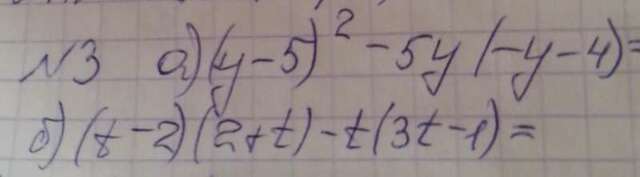 №3 а) (y-5)² - 5y (-y-4)=
б) (t-2)(2+t)-t(3t-1)=